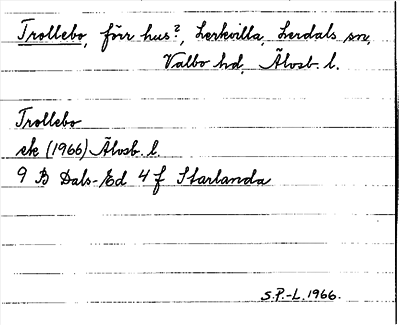 Trollebo, förr hus?, Lerkvilla, Lerdals sn,
Valbo hd, Älvsb. l.
Trollebo
ek (1966) Älvsb. l.
9 B Dals-Ed 4 f Starlanda
S.P.-L. 1966.